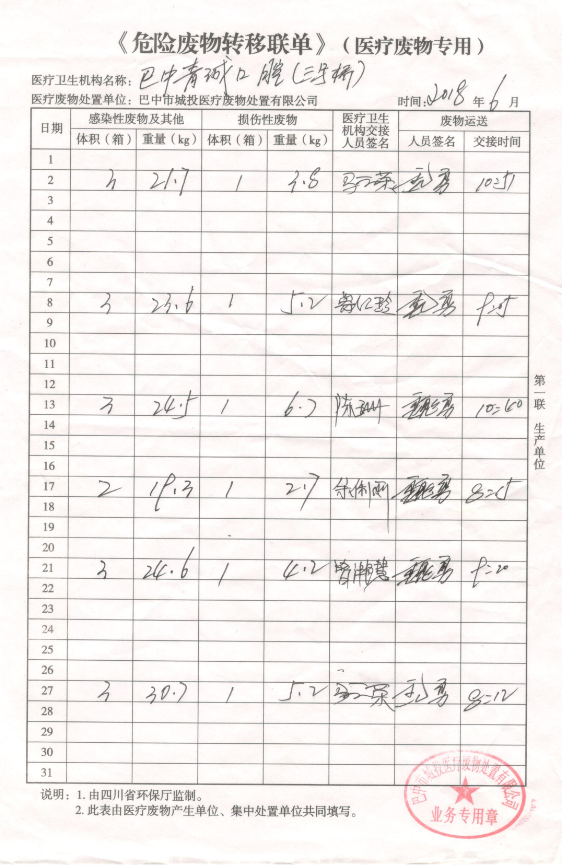 《危险废物转移联单》（医疗废物专用）
医疗卫生机构名称：巴中青城口腔（三号桥）
医疗废物处置单位：巴中市城投医疗废物处置有限公司 时间：2018 年 6 月
日期 感染性废物及其他 损伤性废物 医疗卫生机构交接人员签名 废物运送
体积（箱） 重量（kg） 体积（箱） 重量（kg） 人员签名 交接时间
1
2 3 21.7 1 3.8
3
4
5
6
7
8 3 23.6 1 5.2
9
10
11
12
13 3 24.5 1 6.7 10:40
14
15
16
17 2 19.3 1 2.7 8:15
18
19
20
21 3 24.6 1 4.2 9:20
22
23
24
25
26
27 3 30.7 1 5.2 8:12
28
29
30
31
第一联 生产单位
说明：1. 由四川省环保厅监制。
2. 此表由医疗废物产生单位、集中处置单位共同填写。
巴中市城投医疗废物处置有限公司
业务专用章